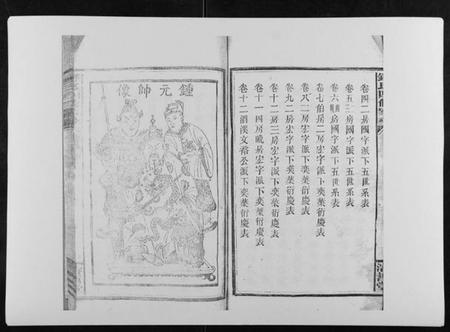 卷四二房國字派下五世系表
卷五三房國字派下五世系表
卷六房國字派下五世系表
卷七伯房二房宏字派下奕葉衍慶表
卷八二房宏字派下奕葉衍慶表
卷九二房宏字派下奕葉衍慶表
卷十二房三房宏字派下奕葉衍慶表
卷十一四房晚房宏字派下奕葉衍慶表
卷十二泗溪文裕公派下奕葉衍慶表
鍾元帥像